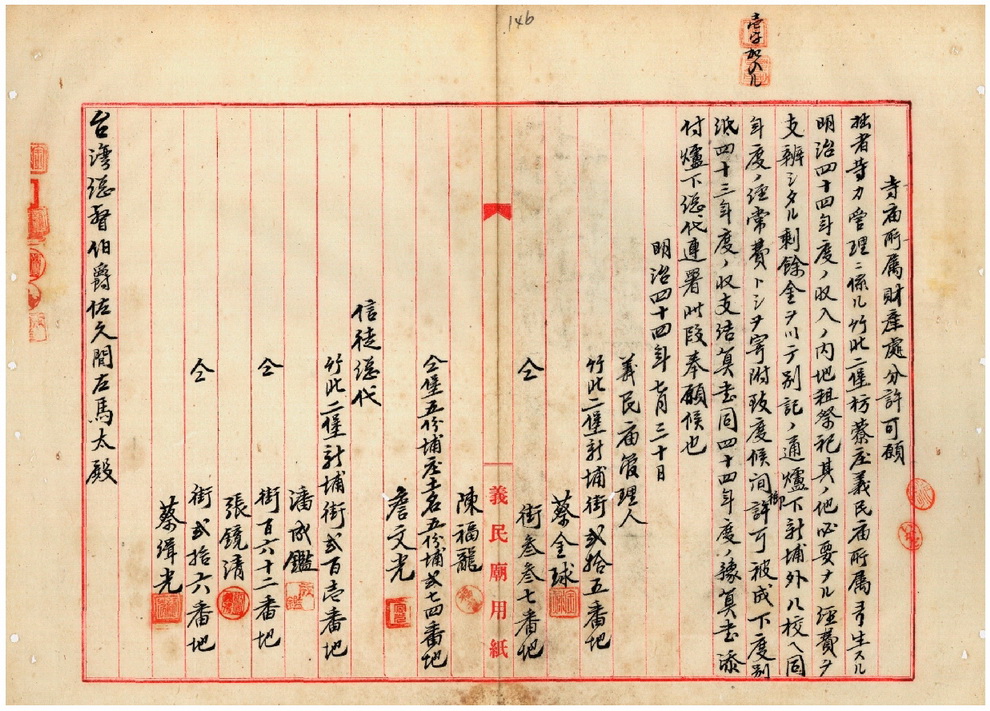 146
壱字加入ル
寺庙所属財産處分許可願
拙者等カ管理ニ係ル竹北二堡枋藔庄義民庙所属ヨリ生スル
明治四十四年度ノ収入ノ内地租祭祀其ノ他必要ナル経費ヲ
支辨シタル剰餘金ヲ以テ別記ノ通爐下新埔外八校ヘ同
年度ノ経常費トシテ寄附致度候間御許可被成下度別
紙四十三年度ノ収支結算書同四十四年度ノ豫算書添
付爐下総代連署此段奉願候也
明治四十四年七月三十日
義民庙管理人
竹北二堡新埔街弐拾五番地
蔡金球
仝 街叁叁七番地
陳福龍
仝堡五份埔庄土名五份埔弐七四番地
詹文光
信徒総代
竹北二堡新埔街弐百壱番地
潘成鑑
仝 街百六十二番地
張鏡清
仝 街弐拾六番地
蔡緝光
台湾総督伯爵佐久間左馬太殿
義民廟用紙